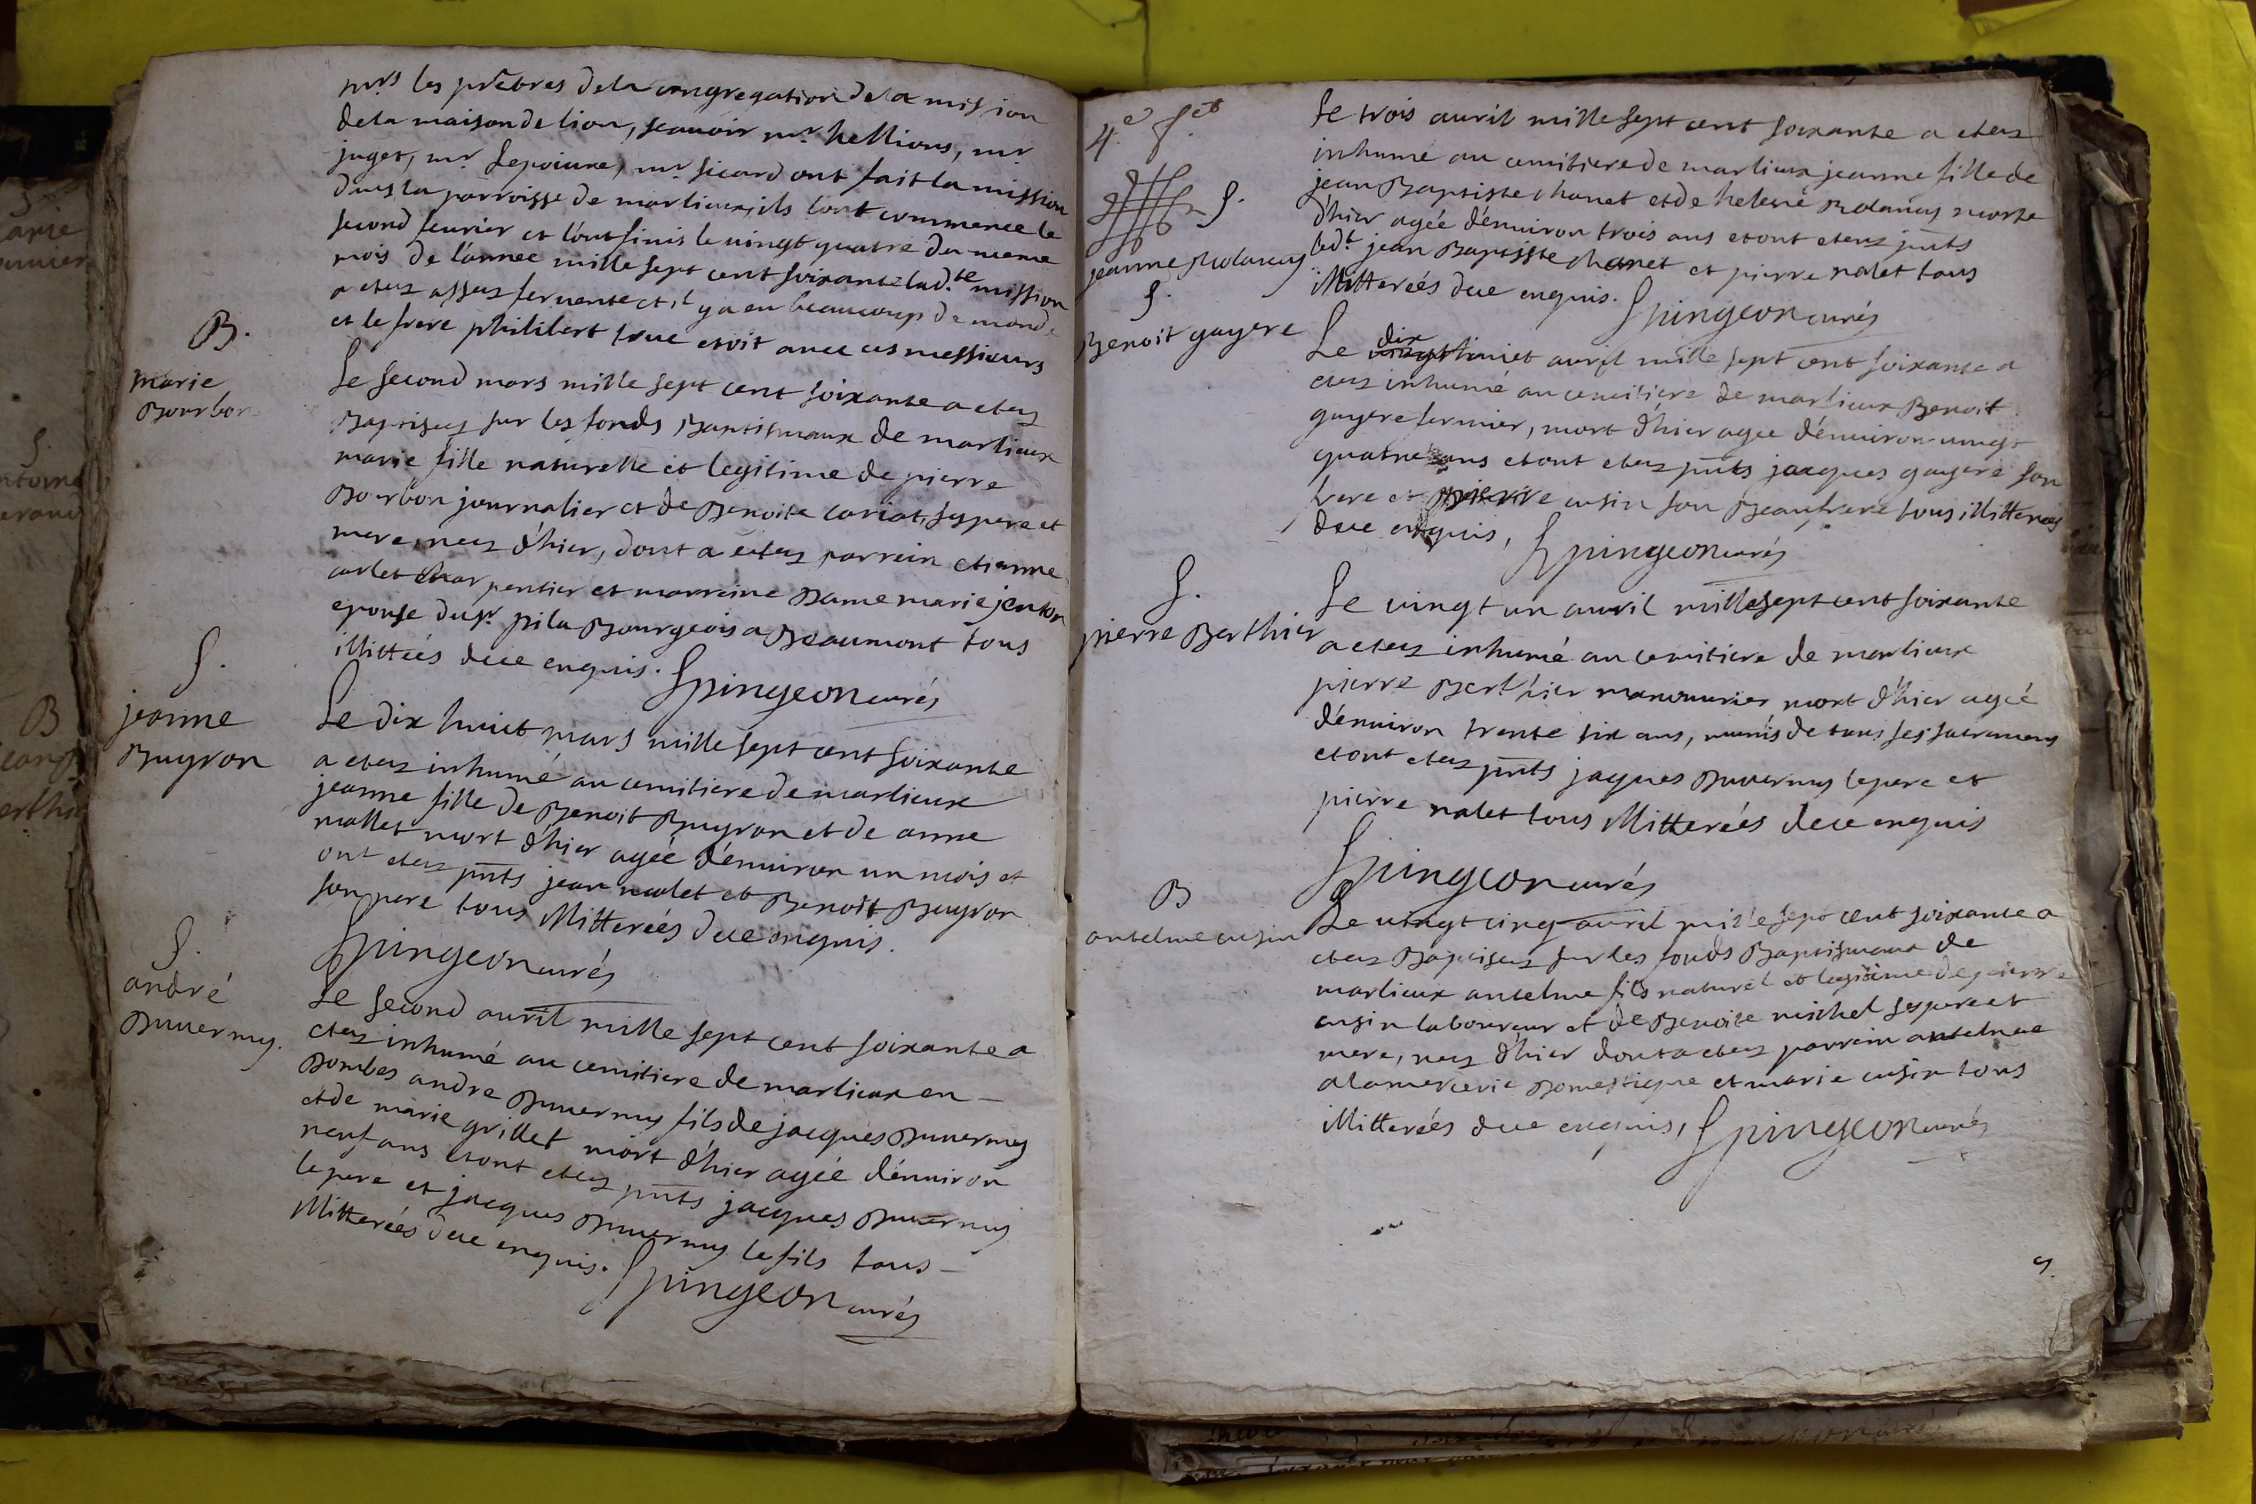 mrs les prêtres de la congregation de la mission
de la maison de lion, scauoir mr. hellions, mr
juget, mr Lepoiure, mr sicard ont fait la mission
dans la parroisse de marlieux, ils l'ont commencé le
second feurier et l'ont finis le uingt quatre du meme
mois de l'année mille sept cent soixante lad.te mission
a etez assez feruente et il y a eu beaucoup de monde
et le frere philibert true etoit auec ces messieurs
B.
marie
Bourbon
Le second mars mille sept cent soixante a etez
Baptisez sur les fonds Baptismaux de marlieux
marie fille naturelle et legitime de pierre
Bourbon journalier et de Benoite cariat, ses pere et
mere, nez d'hier, dont a etez parrein etienne
carlet charpentier et marreine Dame marie jenton
epouse du sr. pila Bourgeois a Beaumont tous
illittrés due enquis. Spingeon curés
S.
jeanne
Buyron
Le dix huit mars mille sept cent soixante
a etez inhumé au cemitiere de marlieux
jeanne fille de Benoit Buyron et de anne
mallet mort d'hier agée d'enuiron un mois et
ont etez pnts jean nalet et Benoit Buyron
son pere tous illitterés due enquis.
Spingeon curés
S.
andré
Duuernay.
Le second auril mille sept cent soixante a
etez inhumé au cemitiere de marlieux en
Dombes andre Duuernay fils de jacques Duuernay
et de marie grillet mort d'hier agée d'enuiron
neuf ans etont etez pnts jacques Duuernay
le pere et jacques Duuernay le fils tous
illitterés due enquis. Spingeon curés
4e f.et
S.
jeanne
Le trois auril mille sept cent soixante a etez
inhumé au cemitiere de marlieux jeanne fille de
jean Baptiste chanet et de helene morte
d'hier agée d'enuiron trois ans etont etez pnts
led.t jean Baptiste chanet et pierre nalet tous
illitterés due enquis. Spingeon curés
S.
Benoit gayere
Le dix auril mille sept cent soixante a
etez inhumé au cemitiere de marlieux Benoit
gayere fermier, mort d'hier agée d'enuiron uingt
quatre ans etont etez pnts jacques gayere son
frere et pierre cusin son Beaufrere tous illitterés
due enquis, Spingeon curés
S.
pierre Berthier
Le uingt un auril mille sept cent soixante
a etez inhumé au cemitiere de marlieux
pierre Berthier manouurier mort d'hier agée
d'enuiron trente six ans, munis de tous ses sacremens
etont etez pnts jacques Duuernay le pere et
pierre nalet tous illitterés due enquis
Spingeon curés
B
antelme cusin
Le uingt cinq auril mille sept cent soixante a
etez Baptisez sur les fonds Baptismaux de
marlieux antelme fils naturel et legitime de pierre
cusin laboureur et de Benoite michel ses pere et
mere, nez d'hier dont a etez parrein antelme
alamercerie Domestique et marie cusin tous
illitterés due enquis, Spingeon curés